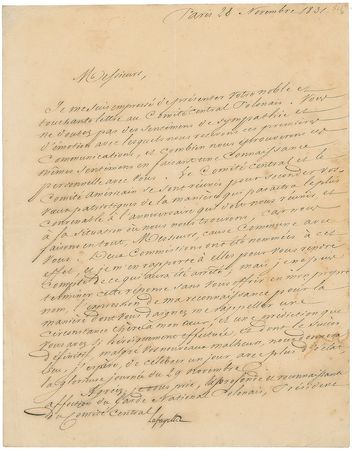 Paris 28 Novembre 1831
Messieurs,
Je me suis empressé de présenter votre noble et
touchante lettre au Comité Central Polonais. Vous
ne doutez pas des sentimens de sympathie et
d'émotion avec lesquels nous recevons ces premières
Communications, et combien nous éprouverons ces
mêmes sentimens en faisant une connaissance
personnelle avec vous. Le Comité central et le
Comité américain se sont réunis pour seconder vos
vœux patriotiques de la manière qui paraîtra le plus
convenable à l'anniversaire qui doit nous réunir et
à la situation où nous nous trouvons, car nous
faisons en tout, Messieurs, cause Commune avec
Vous. Deux Commissions ont été nommées à cet
effet, et je m'en rapporte à elles pour vous rendre
Compte de ce qui aura été arrêté, mais je ne puis
terminer cette réponse sans vous offrir en mon propre
nom, l'expression de ma reconnaissance pour la
manière dont vous daignez me rappeler une
circonstance chère à mon cœur, et une prédiction que
vous avez si héroïquement effectuée et dont le succès
définitif, malgré vos nouveaux malheurs, nous donnera
lieu, j'espère, de célébrer un jour avec plus d'éclat
la glorieuse journée du 29 novembre.
Agréez, vous prie, les profonde et reconnaissante
affection du Garde National Polonais, Président
du Comité Central
Lafayette